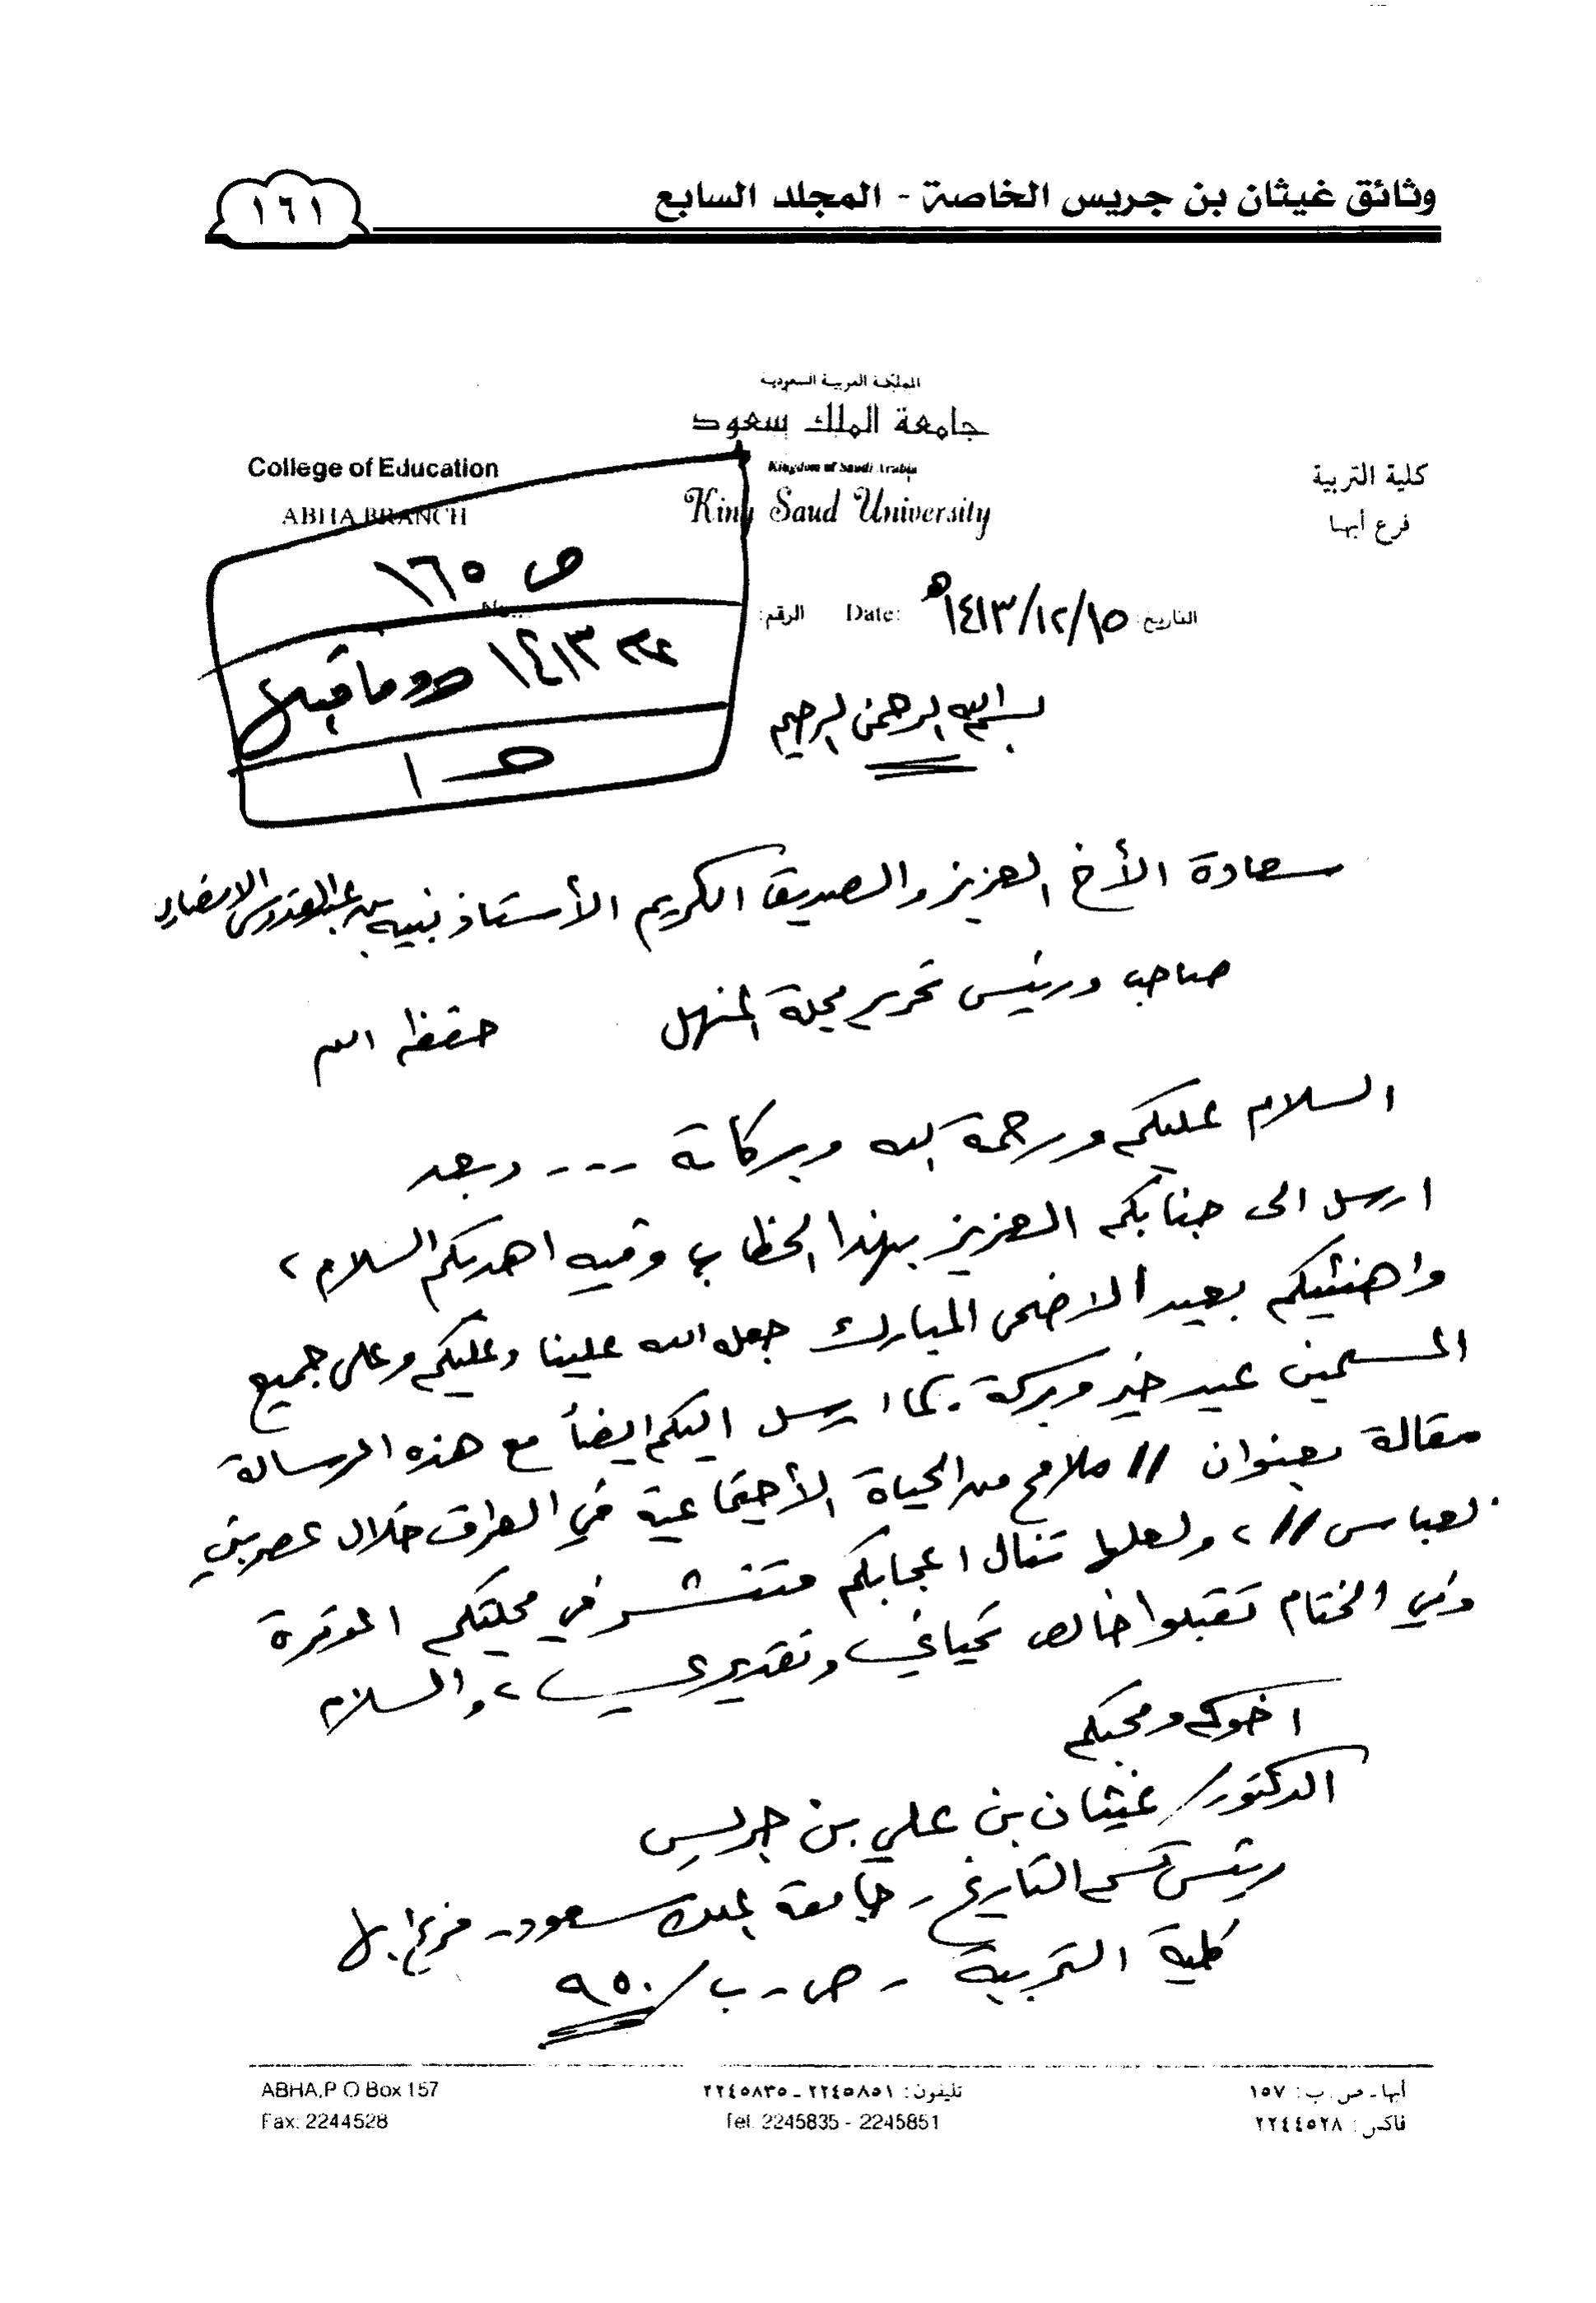 وثائق غيثان بن جريس الخاصة - المجلد السابع
١٦١
المملكة العربية السعودية
جامعة الملك سعود
Kingdom of Saudi Arabia
King Saud University
كلية التربية
فرع أبها
College of Education
ABHA BRANCH
التاريخ: ١٤١٣/١٢/١٥هـ Date: الرقم: No.
ص ١٦٥
١٤١٣ هـ وما قبلها
١
بسم الله الرحمن الرحيم
سعادة الأخ العزيز والصديق الكريم الأستاذ نبيه بن عبدالقدوس الانصاري
صاحب ورئيس تحرير مجلة المنهل حفظه الله
السلام عليكم ورحمة الله وبركاته --- وبعد
ارسل الى جنابكم العزيز بهذا الخطاب وفيه اهديكم السلام ،
واهنئيكم بعيد الاضحى المبارك جعله الله علينا وعليكم وعلى جميع
المسلمين عيد خير وبركة . كما ارسل اليكم ايضاً مع هذه الرسالة
مقالة بعنوان // ملامح من الحياة الأجتماعية في العراق خلال عصر بني
العباس // ، ولعلها تنال اعجابكم فتنشر في مجلتكم الموقرة
وفي الختام تقبلوا خالص تحياتي وتقديري ، والسلام
اخوكم ومحبكم
الدكتور / غيثان بن علي بن جريس
رئيس قسم التاريخ - جامعة الملك سعود - فرع ابها
كلية التربية - ص - ب / ٩٥٠
أبها - ص . ب : ١٥٧
فاكس : ٢٢٤٤٥٢٨
تليفون : ٢٢٤٥٨٥١ - ٢٢٤٥٨٣٥
Tel. 2245835 - 2245851
ABHA,P O Box 157
Fax: 2244528